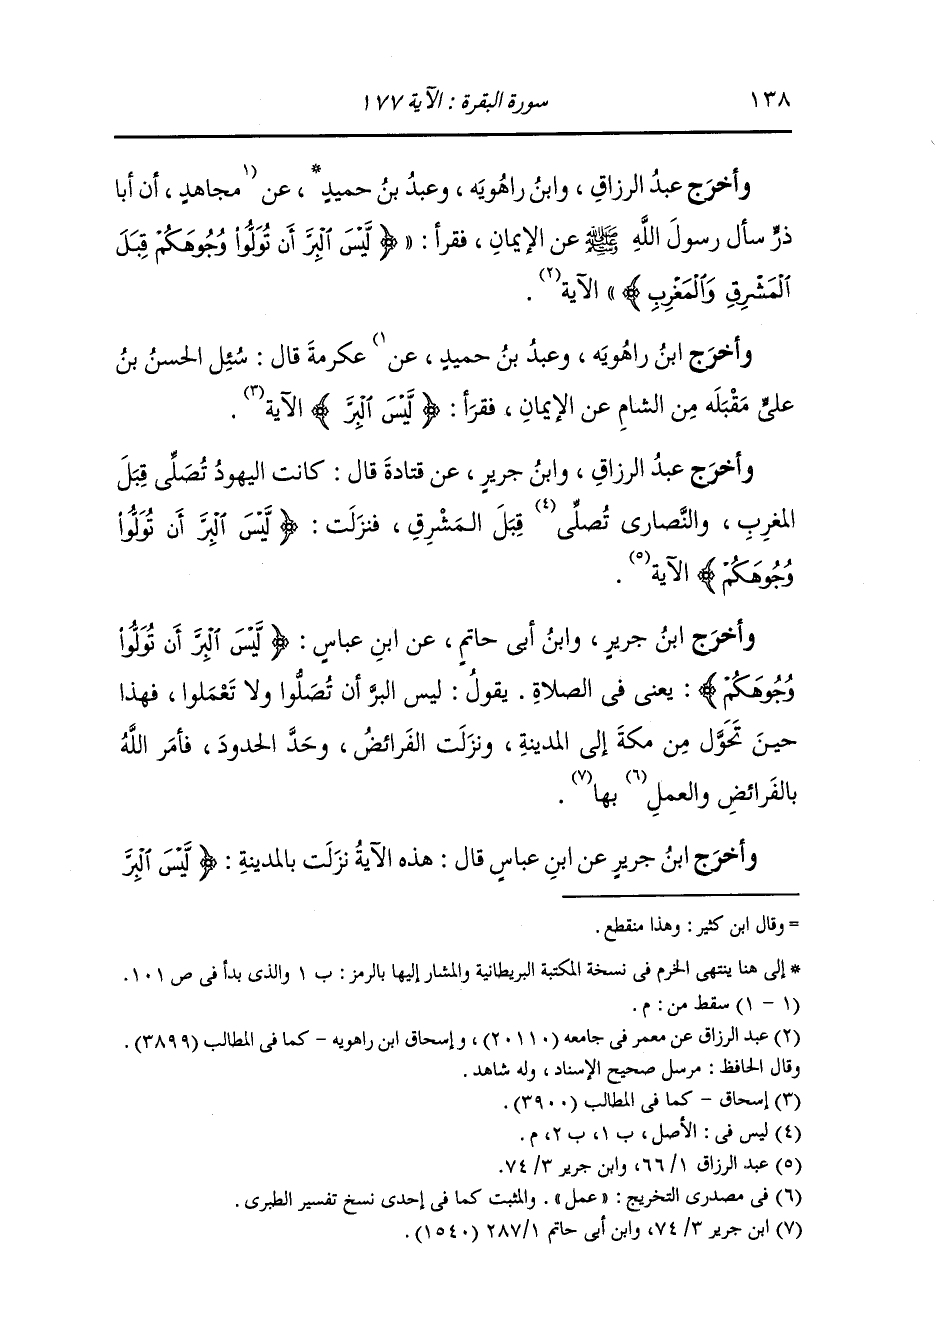 ١٣٨ سورة البقرة : الآية ١٧٧
وأخرَج عبدُ الرزاقِ ، وابنُ راهُويَه ، وعبدُ بنُ حميدٍ* ، عن (١ مجاهدٍ ، أن أبا
ذرٍّ سأل رسولَ اللَّهِ ﷺ عن الإيمانِ ، فقرأ : « ﴿ لَّيْسَ ٱلْبِرَّ أَن تُوَلُّوا۟ وُجُوهَكُمْ قِبَلَ
ٱلْمَشْرِقِ وَٱلْمَغْرِبِ ﴾ » الآية(٢) .
وأخرَج ابنُ راهُويَه ، وعبدُ بنُ حميدٍ ، عن ١) عكرمةَ قال : سُئِل الحسنُ بنُ
علىٍّ مَقْبَلَه مِن الشامِ عن الإيمانِ ، فقرَأ : ﴿ لَّيْسَ ٱلْبِرَّ ﴾ الآية(٣) .
وأخرَج عبدُ الرزاقِ ، وابنُ جريرٍ ، عن قتادةَ قال : كانت اليهودُ تُصَلِّى قِبَلَ
المغرِبِ ، والنَّصارى تُصلِّى(٤) قِبَلَ المَشْرِقِ ، فنزَلَت : ﴿ لَّيْسَ ٱلْبِرَّ أَن تُوَلُّوا۟
وُجُوهَكُمْ ﴾ الآية(٥) .
وأخرَج ابنُ جريرٍ ، وابنُ أبى حاتمٍ ، عن ابنِ عباسٍ : ﴿ لَّيْسَ ٱلْبِرَّ أَن تُوَلُّوا۟
وُجُوهَكُمْ ﴾ : يعنى فى الصلاةِ . يقولُ : ليس البرَّ أن تُصَلُّوا ولا تَعْمَلوا ، فهذا
حينَ تَحَوَّل مِن مكةَ إلى المدينةِ ، ونزَلَت الفَرائضُ ، وحَدَّ الحدودَ ، فأمَر اللَّهُ
بالفَرائضِ والعملِ(٦) بها(٧) .
وأخرَج ابنُ جريرٍ عن ابنِ عباسٍ قال : هذه الآيةُ نزَلَت بالمدينةِ : ﴿ لَّيْسَ ٱلْبِرَّ
= وقال ابن كثير : وهذا منقطع .
* إلى هنا ينتهى الخرم فى نسخة المكتبة البريطانية والمشار إليها بالرمز : ب ١ والذى بدأ فى ص ١٠١ .
(١ - ١) سقط من : م .
(٢) عبد الرزاق عن معمر فى جامعه (٢٠١١٠) ، وإسحاق ابن راهويه - كما فى المطالب (٣٨٩٩) .
وقال الحافظ : مرسل صحيح الإسناد ، وله شاهد .
(٣) إسحاق - كما فى المطالب (٣٩٠٠) .
(٤) ليس فى : الأصل ، ب ١، ب ٢، م .
(٥) عبد الرزاق ١/ ٦٦، وابن جرير ٣/ ٧٤.
(٦) فى مصدرى التخريج : « عمل » . والمثبت كما فى إحدى نسخ تفسير الطبرى .
(٧) ابن جرير ٣/ ٧٤، وابن أبى حاتم ٢٨٧/١ (١٥٤٠) .